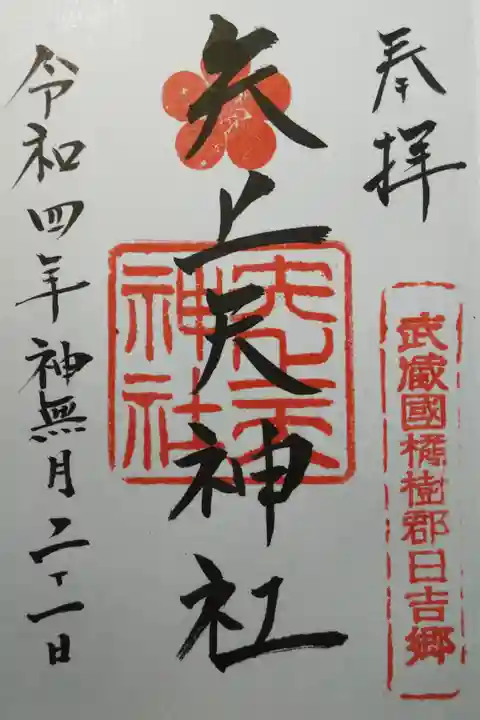 奉拝
武蔵國橘樹郡日吉郷
矢上天神社
令和四年神無月二十一日